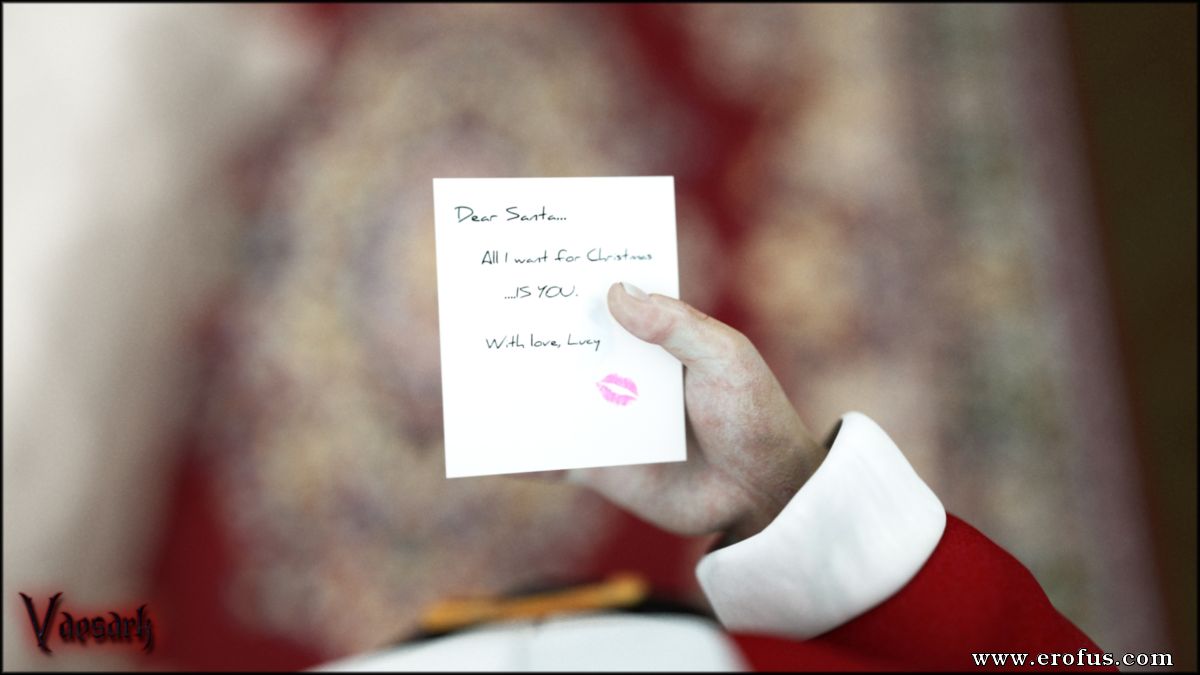 Dear Santa...
All I want for Christmas
....IS YOU.
With love, Lucy
Vaesark
www.erofus.com